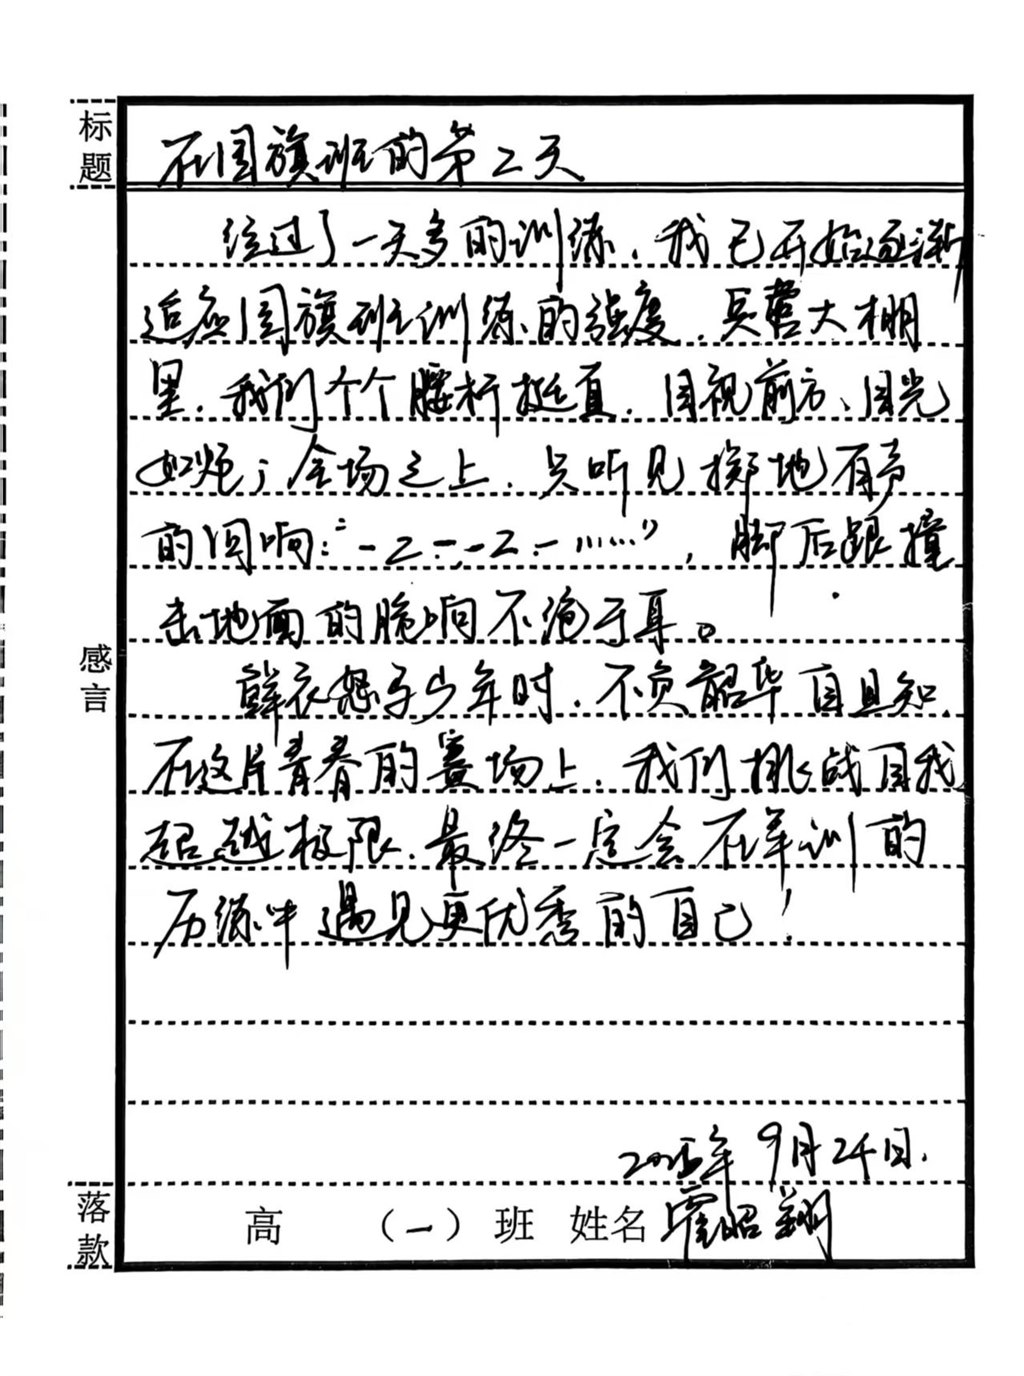 标题
在国旗班的第二天
经过了一天多的训练，我已开始逐渐
适应国旗班训练的强度，兵营大棚
里，我们个个腰杆挺直，目视前方、目光
如炬；全场之上，只听见掷地有声
的回响：“一二一，一二一……”，脚后跟撞
击地面的脆响不绝于耳。
鲜衣怒马少年时，不负韶华自且知，
在这片青春的赛场上，我们挑战自我
超越极限，最终一定会在军训的
历练中遇见更优秀的自己！
感言
2025年9月24日.
落款
高 （一）班 姓名 霍昭翔